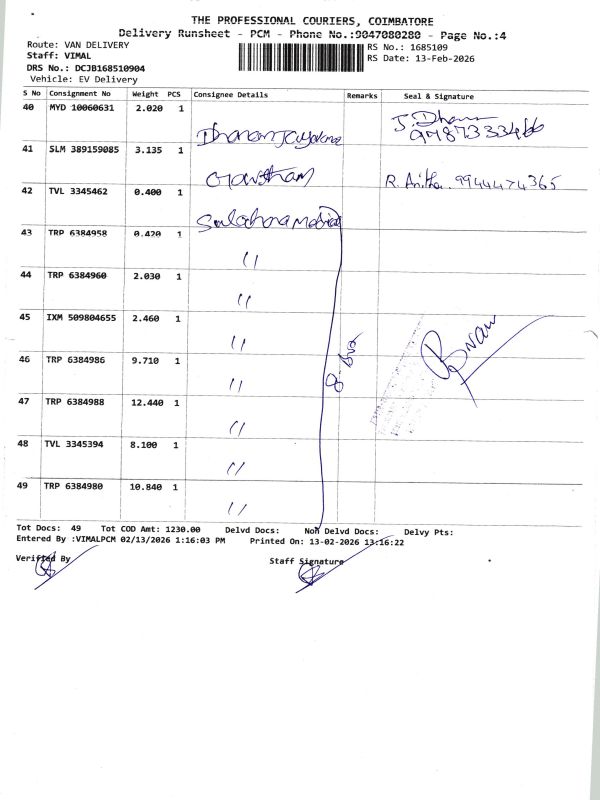 THE PROFESSIONAL COURIERS, COIMBATORE
Delivery Runsheet - PCM - Phone No.:9047080280 - Page No.:4
Route: VAN DELIVERY
RS No.: 1685109
Staff: VIMAL
RS Date: 13-Feb-2026
DRS No.: DCJB168510904
Vehicle: EV Delivery
S No Consignment No Weight PCS Consignee Details Remarks Seal & Signature
40 MYD 10060631 2.020 1
J. Dhana
9487333466
41 SLM 389159085 3.135 1
Gowtham R. Anitha. 9944474365
42 TVL 3345462 0.400 1
43 TRP 6384958 0.420 1
"
44 TRP 6384960 2.030 1
"
45 IXM 509804655 2.460 1
"
46 TRP 6384986 9.710 1
"
47 TRP 6384988 12.440 1
"
48 TVL 3345394 8.100 1
"
49 TRP 6384980 10.840 1
"
Tot Docs: 49 Tot COD Amt: 1230.00 Delvd Docs: Non Delvd Docs: Delvy Pts:
Entered By :VIMALPCM 02/13/2026 1:16:03 PM Printed On: 13-02-2026 13:16:22
Verified By Staff Signature